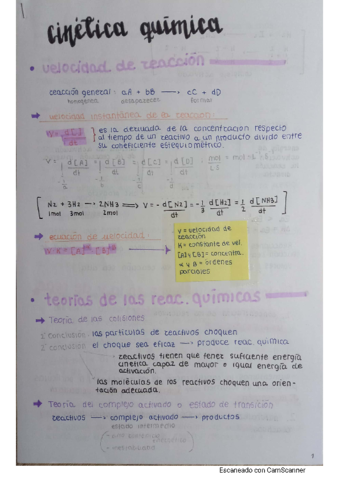 cinética química
• velocidad de reacción
reacción general: aA + bB → cC + dD
es la derivada de la concentración respecto
al tiempo de un reactivo o un producto dividido entre
su coeficiente estequiométrico.
[ N2 + 3H2 → 2NH3 ⟹ V = - d[N2]/dt = - 1/3 d[H2]/dt = 1/2 d[NH3]/dt ]
1mol 3mol 2mol
→ ecuación de velocidad
V = velocidad de
reacción
K = constante de vel.
[A] y [B] = concentra.
α y β = órdenes
parciales
• teorías de las reac. químicas
→ Teoría de las colisiones
las partículas de reactivos choquen
el choque sea eficaz → produce reac. química
· reactivos tienen que tener suficiente energía
cinética capaz de mayor o igual energía de
activación.
· las moléculas de los reactivos choquen una orien-
tación adecuada.
→ Teoría del complejo activado o estado de transición
reactivos → complejo activado → productos
estado intermedio
1
Escaneado con CamScanner